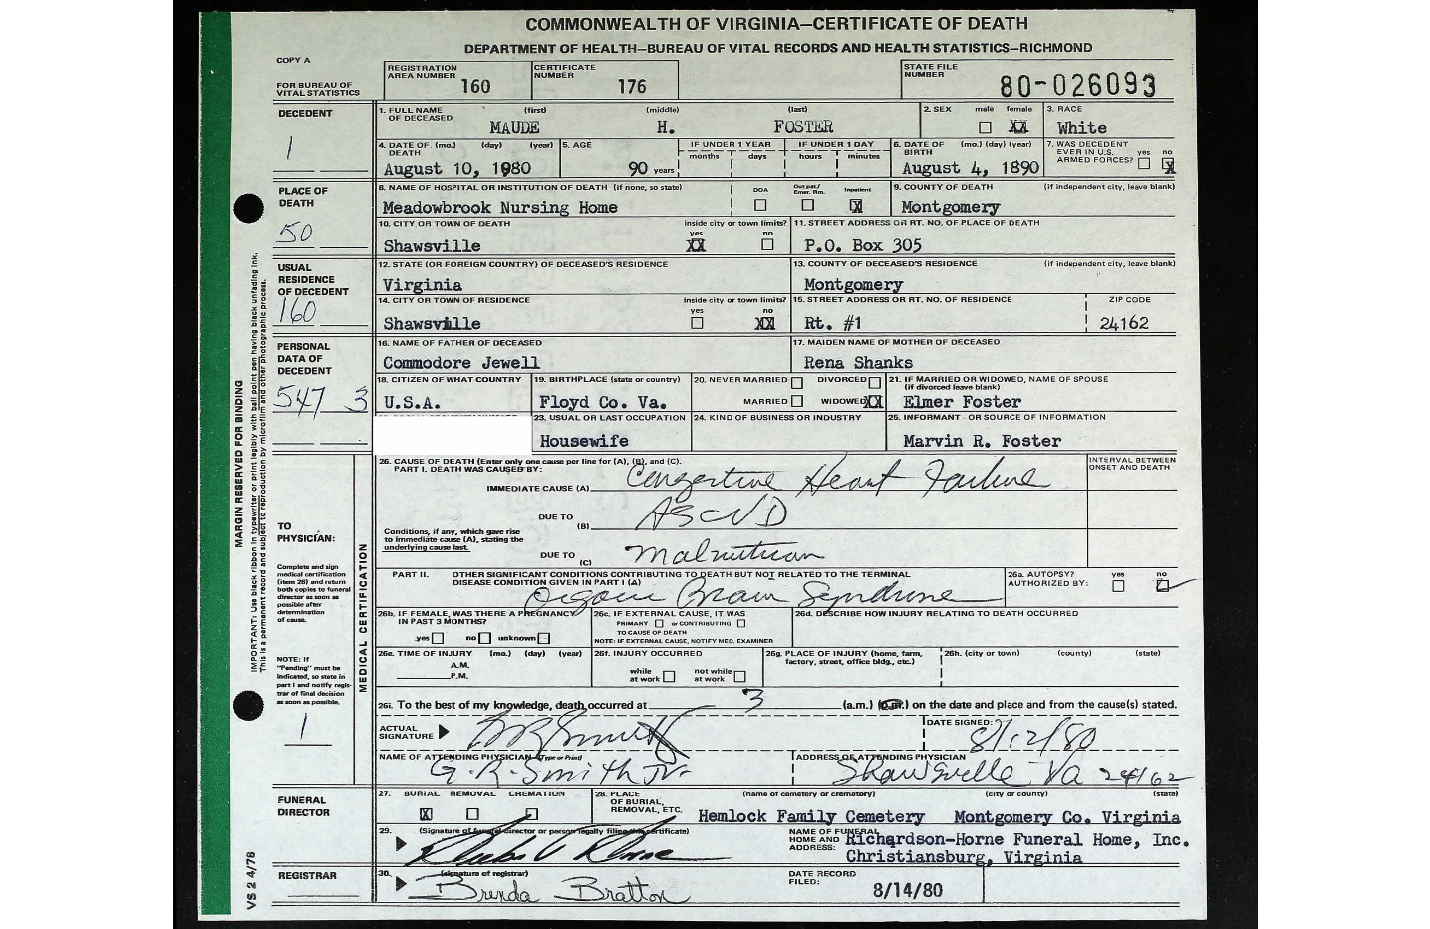 COMMONWEALTH OF VIRGINIA—CERTIFICATE OF DEATH
DEPARTMENT OF HEALTH—BUREAU OF VITAL RECORDS AND HEALTH STATISTICS—RICHMOND
COPY A
FOR BUREAU OF VITAL STATISTICS
REGISTRATION AREA NUMBER 160
CERTIFICATE NUMBER 176
STATE FILE NUMBER 80-026093
DECEDENT
1
1. FULL NAME OF DECEASED (first) (middle) (last)
MAUDE H. FOSTER
2. SEX male female XX
3. RACE White
4. DATE OF DEATH (mo.) (day) (year)
August 10, 1980
5. AGE 90 years
IF UNDER 1 YEAR months days
IF UNDER 1 DAY hours minutes
6. DATE OF BIRTH (mo.) (day) (year)
August 4, 1890
7. WAS DECEDENT EVER IN U.S. ARMED FORCES? yes no X
PLACE OF DEATH
50
8. NAME OF HOSPITAL OR INSTITUTION OF DEATH (if none, so state)
Meadowbrook Nursing Home
DOA Outpat/Emer. Rm. Inpatient X
9. COUNTY OF DEATH (if independent city, leave blank)
Montgomery
10. CITY OR TOWN OF DEATH inside city or town limits? yes no
Shawsville XX
11. STREET ADDRESS OR RT. NO. OF PLACE OF DEATH
P.O. Box 305
USUAL RESIDENCE OF DECEDENT
160
12. STATE (OR FOREIGN COUNTRY) OF DECEASED'S RESIDENCE
Virginia
13. COUNTY OF DECEASED'S RESIDENCE (if independent city, leave blank)
Montgomery
14. CITY OR TOWN OF RESIDENCE inside city or town limits? yes no
Shawsville XX
15. STREET ADDRESS OR RT. NO. OF RESIDENCE ZIP CODE
Rt. #1 24162
PERSONAL DATA OF DECEDENT
547 3
16. NAME OF FATHER OF DECEASED
Commodore Jewell
17. MAIDEN NAME OF MOTHER OF DECEASED
Rena Shanks
18. CITIZEN OF WHAT COUNTRY
U.S.A.
19. BIRTHPLACE (state or country)
Floyd Co. Va.
20. NEVER MARRIED DIVORCED
MARRIED WIDOWED XX
21. IF MARRIED OR WIDOWED, NAME OF SPOUSE (if divorced leave blank)
Elmer Foster
23. USUAL OR LAST OCCUPATION
Housewife
24. KIND OF BUSINESS OR INDUSTRY
25. INFORMANT - OR SOURCE OF INFORMATION
Marvin R. Foster
MARGIN RESERVED FOR BINDING
IMPORTANT: Use black ribbon in typewriter or print legibly with ball point pen having black unfading ink.
This is a permanent record and subject to reproduction by microfilm and other photographic process.
TO PHYSICIAN:
Complete and sign medical certification (item 26) and return both copies to funeral director as soon as possible after determination of cause.
NOTE: If "Pending" must be indicated, so state in part I and notify registrar of final decision as soon as possible.
1
MEDICAL CERTIFICATION
26. CAUSE OF DEATH (Enter only one cause per line for (A), (B), and (C).
PART I. DEATH WAS CAUSED BY:
INTERVAL BETWEEN ONSET AND DEATH
IMMEDIATE CAUSE (A) Congestive Heart Failure
DUE TO (B) ASCVD
Conditions, if any, which gave rise to immediate cause (A), stating the underlying cause last.
DUE TO (C) Malnutrition
PART II. OTHER SIGNIFICANT CONDITIONS CONTRIBUTING TO DEATH BUT NOT RELATED TO THE TERMINAL DISEASE CONDITION GIVEN IN PART I (A)
Organic Brain Syndrome
26a. AUTOPSY? AUTHORIZED BY: yes no
26b. IF FEMALE, WAS THERE A PREGNANCY IN PAST 3 MONTHS?
yes no unknown
26c. IF EXTERNAL CAUSE, IT WAS
PRIMARY or CONTRIBUTING
TO CAUSE OF DEATH
NOTE: IF EXTERNAL CAUSE, NOTIFY MED. EXAMINER
26d. DESCRIBE HOW INJURY RELATING TO DEATH OCCURRED
26e. TIME OF INJURY (mo.) (day) (year)
A.M.
P.M.
26f. INJURY OCCURRED
while at work not while at work
26g. PLACE OF INJURY (home, farm, factory, street, office bldg., etc.)
26h. (city or town) (county) (state)
26i. To the best of my knowledge, death occurred at 3 (a.m.) (p.m.) on the date and place and from the cause(s) stated.
ACTUAL SIGNATURE GR Smith
DATE SIGNED: 8/12/80
NAME OF ATTENDING PHYSICIAN (Type or Print)
G.R. Smith Jr.
ADDRESS OF ATTENDING PHYSICIAN
Shawsville Va 24162
FUNERAL DIRECTOR
27. BURIAL REMOVAL CREMATION
X
28. PLACE OF BURIAL, REMOVAL, ETC. (name of cemetery or crematory) (city or county) (state)
Hemlock Family Cemetery Montgomery Co. Virginia
29. (Signature of funeral director or person legally filing this certificate)
NAME OF FUNERAL HOME AND ADDRESS:
Richardson-Horne Funeral Home, Inc.
Christiansburg, Virginia
REGISTRAR
30. (signature of registrar)
Brenda Bratton
DATE RECORD FILED:
8/14/80
VS 2 4/78